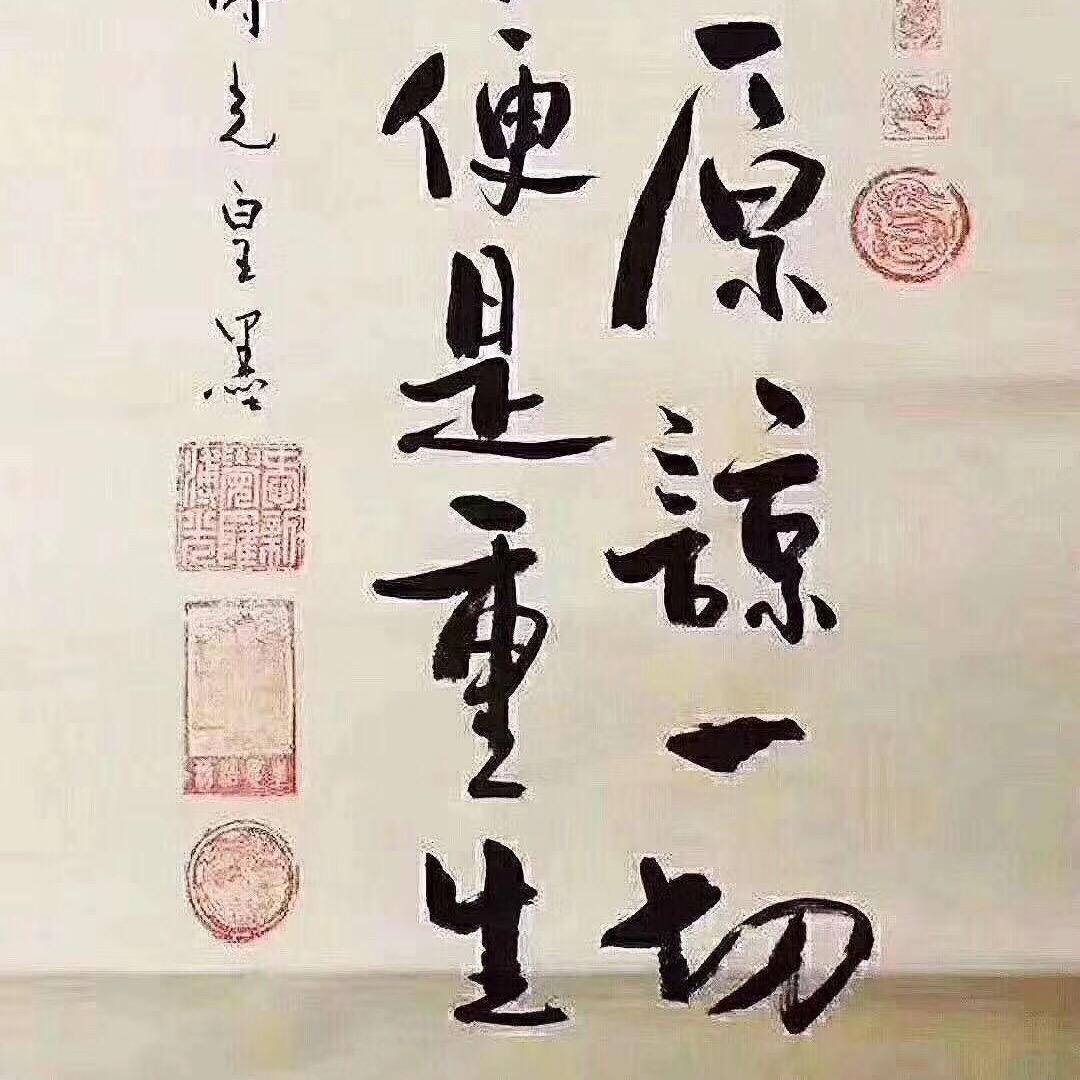 原諒一切
便是重生
光皇墨